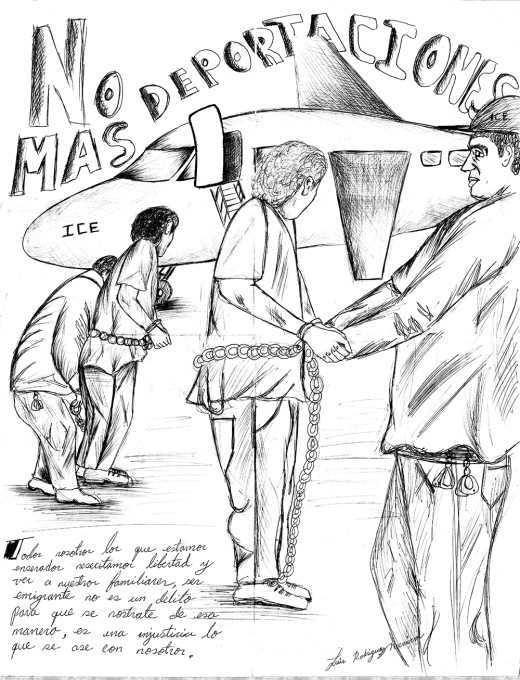 NO DEPORTACIONES
MAS
ICE
ICE
Todos nosotros los que estamos
enserados nesecitamos libertad y
ver a nuestros familiares, ser
emigrante no es un delito
para que se nostrate de esa
manera, es una injusticia lo
que se ase con nosotros.
Luis Rodriguez